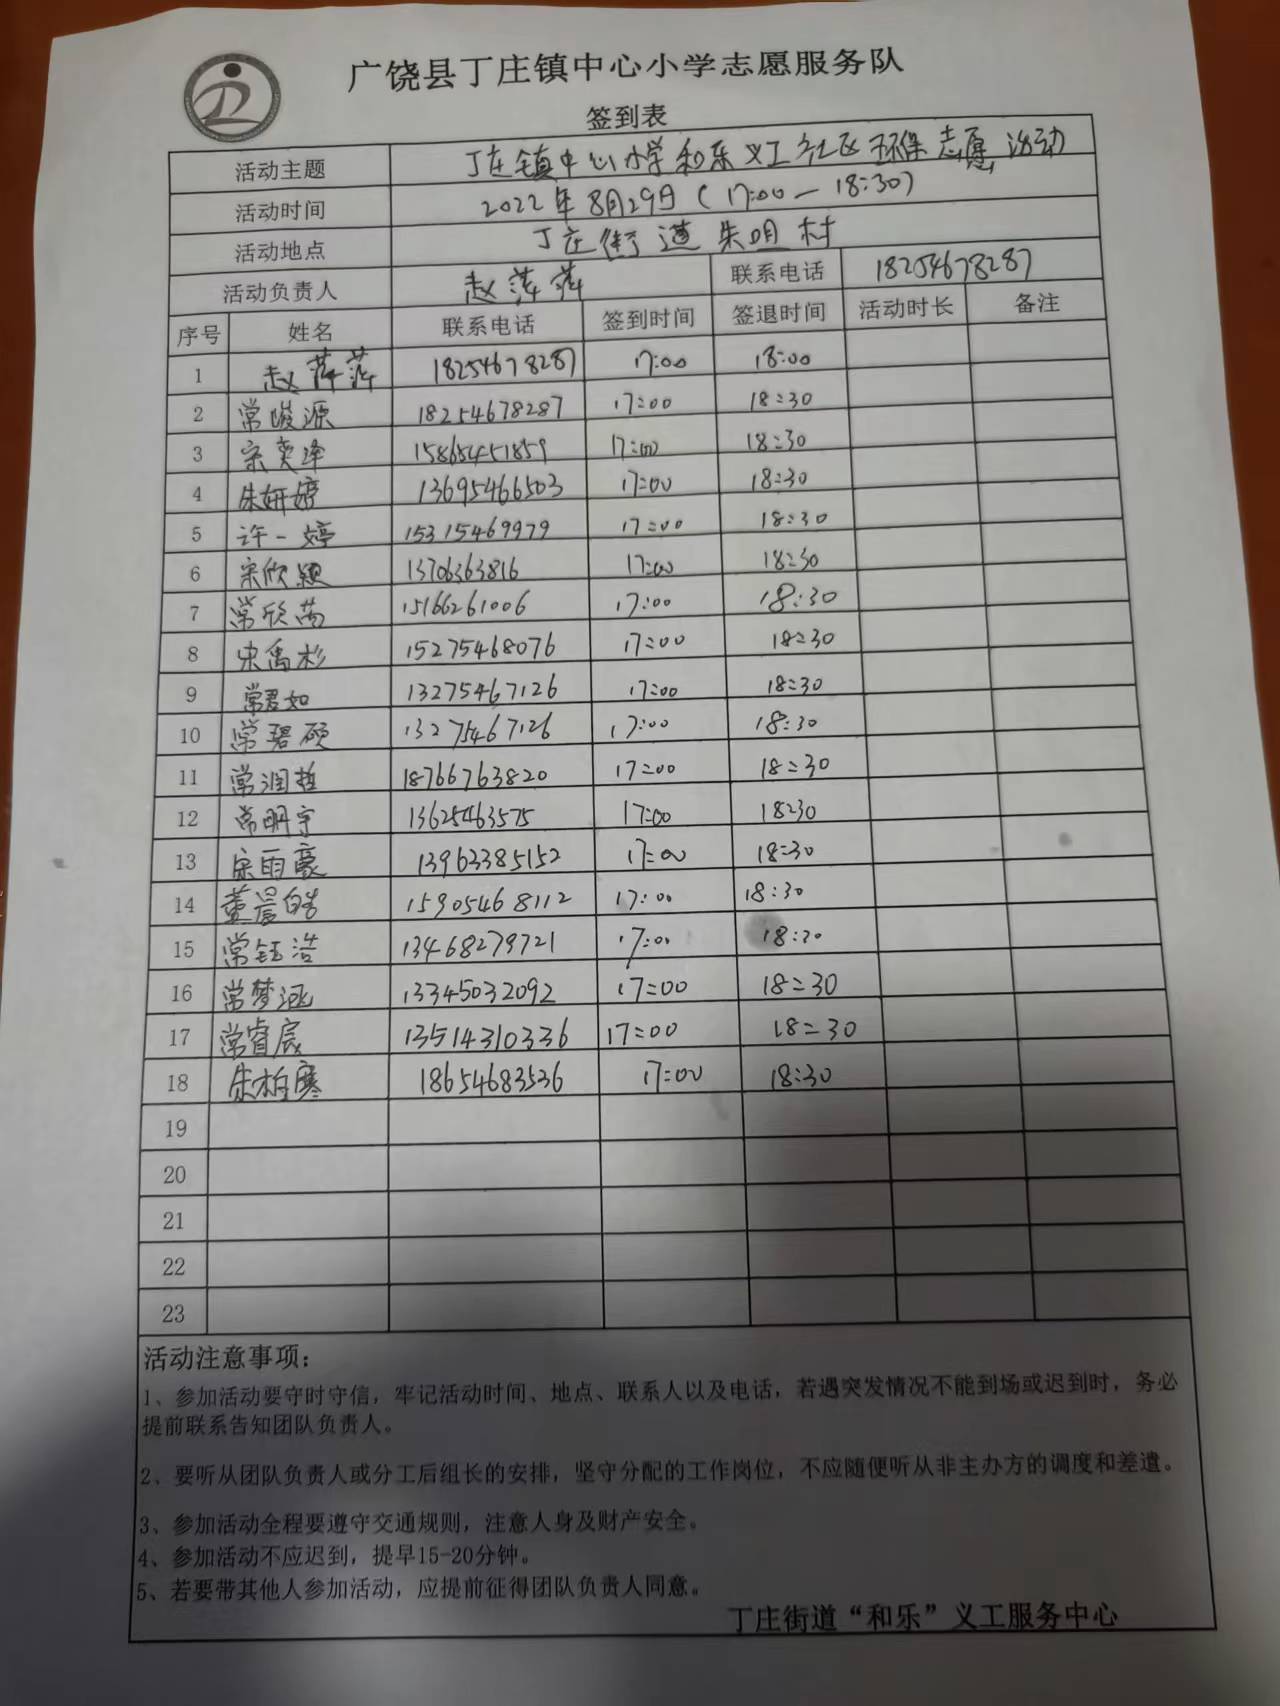 广饶县丁庄镇中心小学志愿服务队
签到表
活动主题 丁庄镇中心小学和乐义工社区环保志愿活动
活动时间 2022年8月29日(17:00—18:30)
活动地点 丁庄街道朱咀村
活动负责人 赵萍萍 联系电话 18254678287
序号 姓名 联系电话 签到时间 签退时间 活动时长 备注
1 赵萍萍 18254678287 17:00 18:00
2 常峻源 18254678287 17:00 18:30
3 宋奕泽 15865451859 17:00 18:30
4 朱妍婷 13695466503 17:00 18:30
5 许一婷 15315469979 17:00 18:30
6 宋欣颖 13706363816 17:00 18:30
7 常欣茜 15166261006 17:00 18:30
8 宋禹杉 15275468076 17:00 18:30
9 常君如 13275467126 17:00 18:30
10 常碧硕 13275467126 17:00 18:30
11 常润哲 18766763820 17:00 18:30
12 常明宇 13625463575 17:00 18:30
13 宋雨豪 13963385152 17:00 18:30
14 董晨皓 15905468112 17:00 18:30
15 常钰浩 13468279721 17:00 18:30
16 常梦涵 13345032092 17:00 18:30
17 常睿宸 13514310336 17:00 18:30
18 朱柏寒 18654683536 17:00 18:30
19
20
21
22
23
活动注意事项：
1、参加活动要守时守信，牢记活动时间、地点、联系人以及电话，若遇突发情况不能到场或迟到时，务必
提前联系告知团队负责人。
2、要听从团队负责人或分工后组长的安排，坚守分配的工作岗位，不应随便听从非主办方的调度和差遣。
3、参加活动全程要遵守交通规则，注意人身及财产安全。
4、参加活动不应迟到，提早15-20分钟。
5、若要带其他人参加活动，应提前征得团队负责人同意。
丁庄街道“和乐”义工服务中心